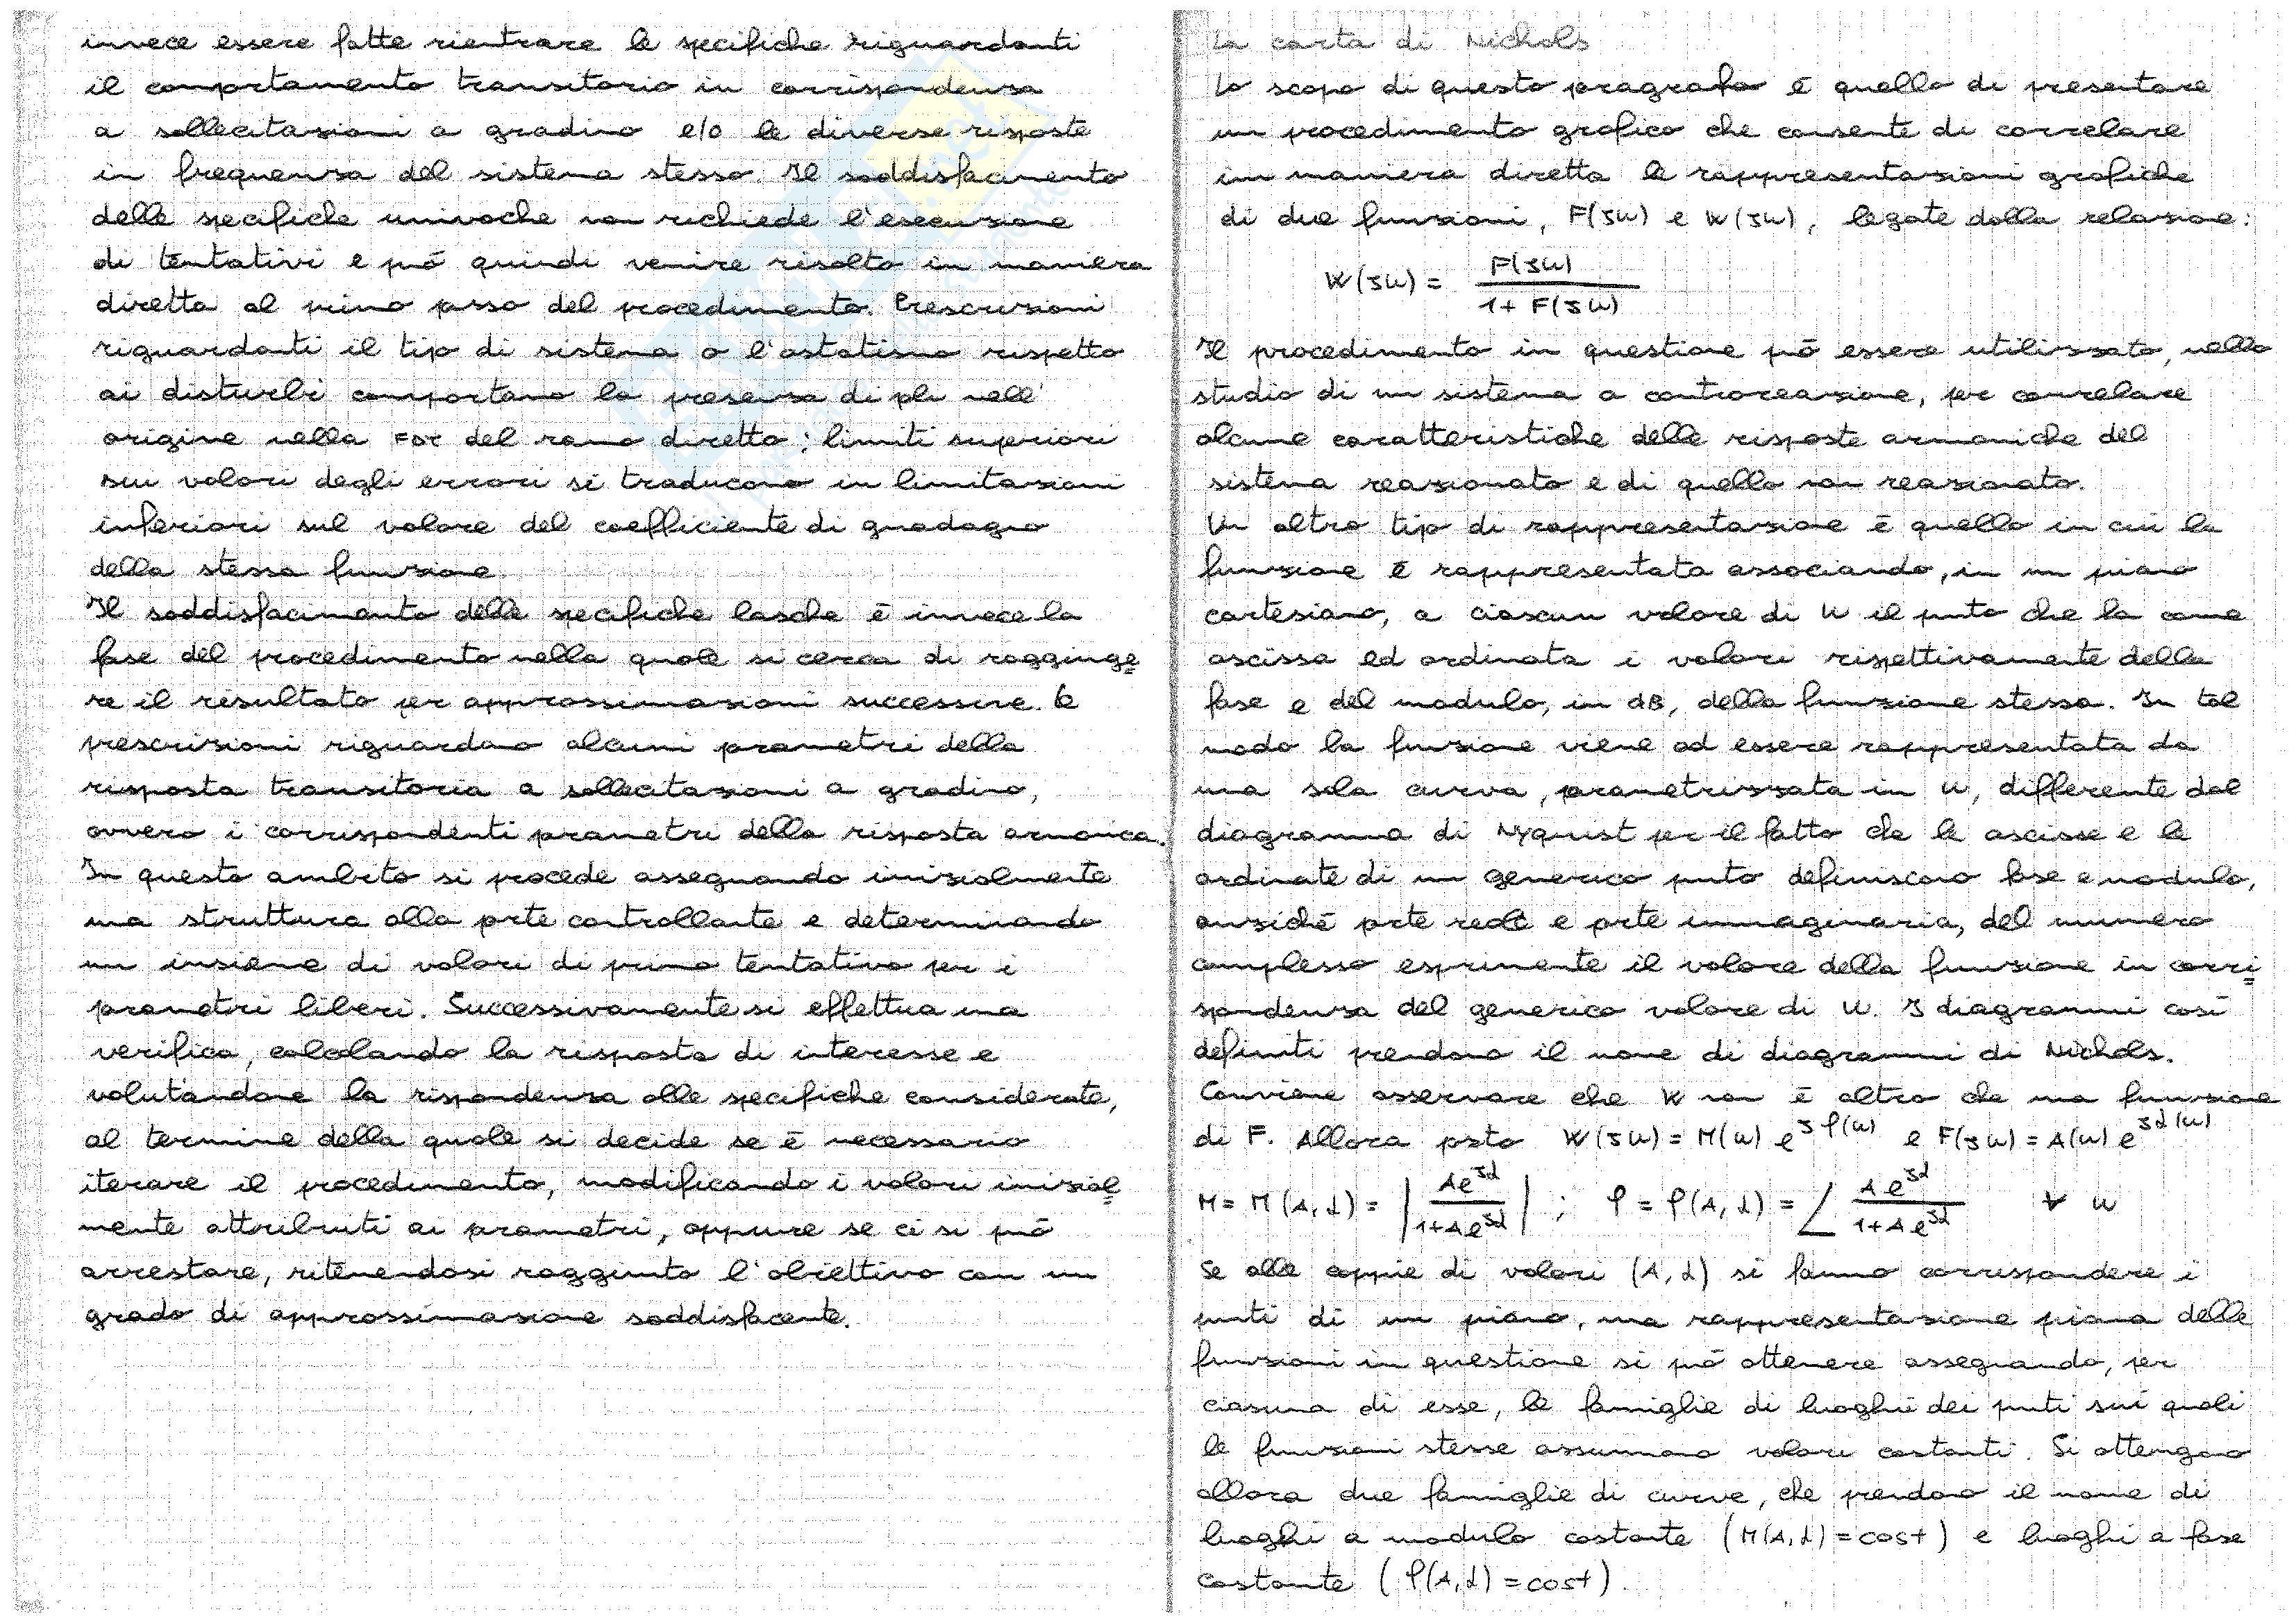 invece essere fatte rientrare le specifiche riguardanti
il comportamento transitorio in corrispondenza
a sollecitazioni a gradino e/o le diverse risposte
in frequenza del sistema stesso. Il soddisfacimento
delle specifiche univoche non richiede l'esecuzione
di tentativi e può quindi venire risolto in maniera
diretta al primo passo del procedimento. Prescrizioni
riguardanti il tipo di sistema o l'astatismo rispetto
ai disturbi comportano la presenza di poli nell'
origine nella FDT del ramo diretto; limiti superiori
sui valori degli errori si traducono in limitazioni
inferiori sul valore del coefficiente di guadagno
della stessa funzione.
Il soddisfacimento delle specifiche lasche è invece la
fase del procedimento nella quale si cerca di raggiunge
re il risultato per approssimazioni successive. Le
prescrizioni riguardano alcuni parametri della
risposta transitoria a sollecitazioni a gradino,
ovvero i corrispondenti parametri della risposta armonica.
In questo ambito si procede assegnando inizialmente
una struttura alla parte controllante e determinando
un insieme di valori di primo tentativo per i
parametri liberi. Successivamente si effettua una
verifica, calcolando la risposta di interesse e
valutandone la rispondenza alle specifiche considerate,
al termine della quale si decide se è necessario
iterare il procedimento, modificando i valori inizial
mente attribuiti ai parametri, oppure se ci si può
arrestare, ritenendosi raggiunto l'obiettivo con un
grado di approssimazione soddisfacente.
La carta di Nichols
Lo scopo di questo paragrafo è quello di presentare
un procedimento grafico che consente di correlare
in maniera diretta le rappresentazioni grafiche
di due funzioni, F(jω) e W(jω), legate dalla relazione:
W(jω) = F(jω) / 1 + F(jω)
Il procedimento in questione può essere utilizzato, nello
studio di un sistema a controreazione, per correlare
alcune caratteristiche delle risposte armoniche del
sistema reazionato e di quello non reazionato.
Un altro tipo di rappresentazione è quello in cui la
funzione è rappresentata associando, in un piano
cartesiano, a ciascun valore di ω il punto che ha come
ascissa ed ordinata i valori rispettivamente della
fase e del modulo, in dB, della funzione stessa. In tal
modo la funzione viene ad essere rappresentata da
una sola curva, parametrizzata in ω, differente dal
diagramma di Nyquist per il fatto che le ascisse e le
ordinate di un generico punto definiscono fase e modulo,
anziché parte reale e parte immaginaria, del numero
complesso esprimente il valore della funzione in corri
spondenza del generico valore di ω. I diagrammi così
definiti prendono il nome di diagrammi di Nichols.
Conviene osservare che W non è altro che una funzione
di F. Allora posto W(jω) = M(ω) e^jφ(ω) e F(jω) = A(ω) e^jα(ω)
M = M(A,α) = | Ae^jα / 1+Ae^jα | ; φ = φ(A,α) = ∠ Ae^jα / 1+Ae^jα ∀ ω
Se alle coppie di valori (A,α) si fanno corrispondere i
punti di un piano, una rappresentazione piana delle
funzioni in questione si può ottenere assegnando, per
ciascuna di esse, le famiglie di luoghi dei punti sui quali
le funzioni stesse assumono valori costanti. Si ottengono
allora due famiglie di curve, che prendono il nome di
luoghi a modulo costante (M(A,α) = cost) e luoghi a fase
costante (φ(A,α) = cost).